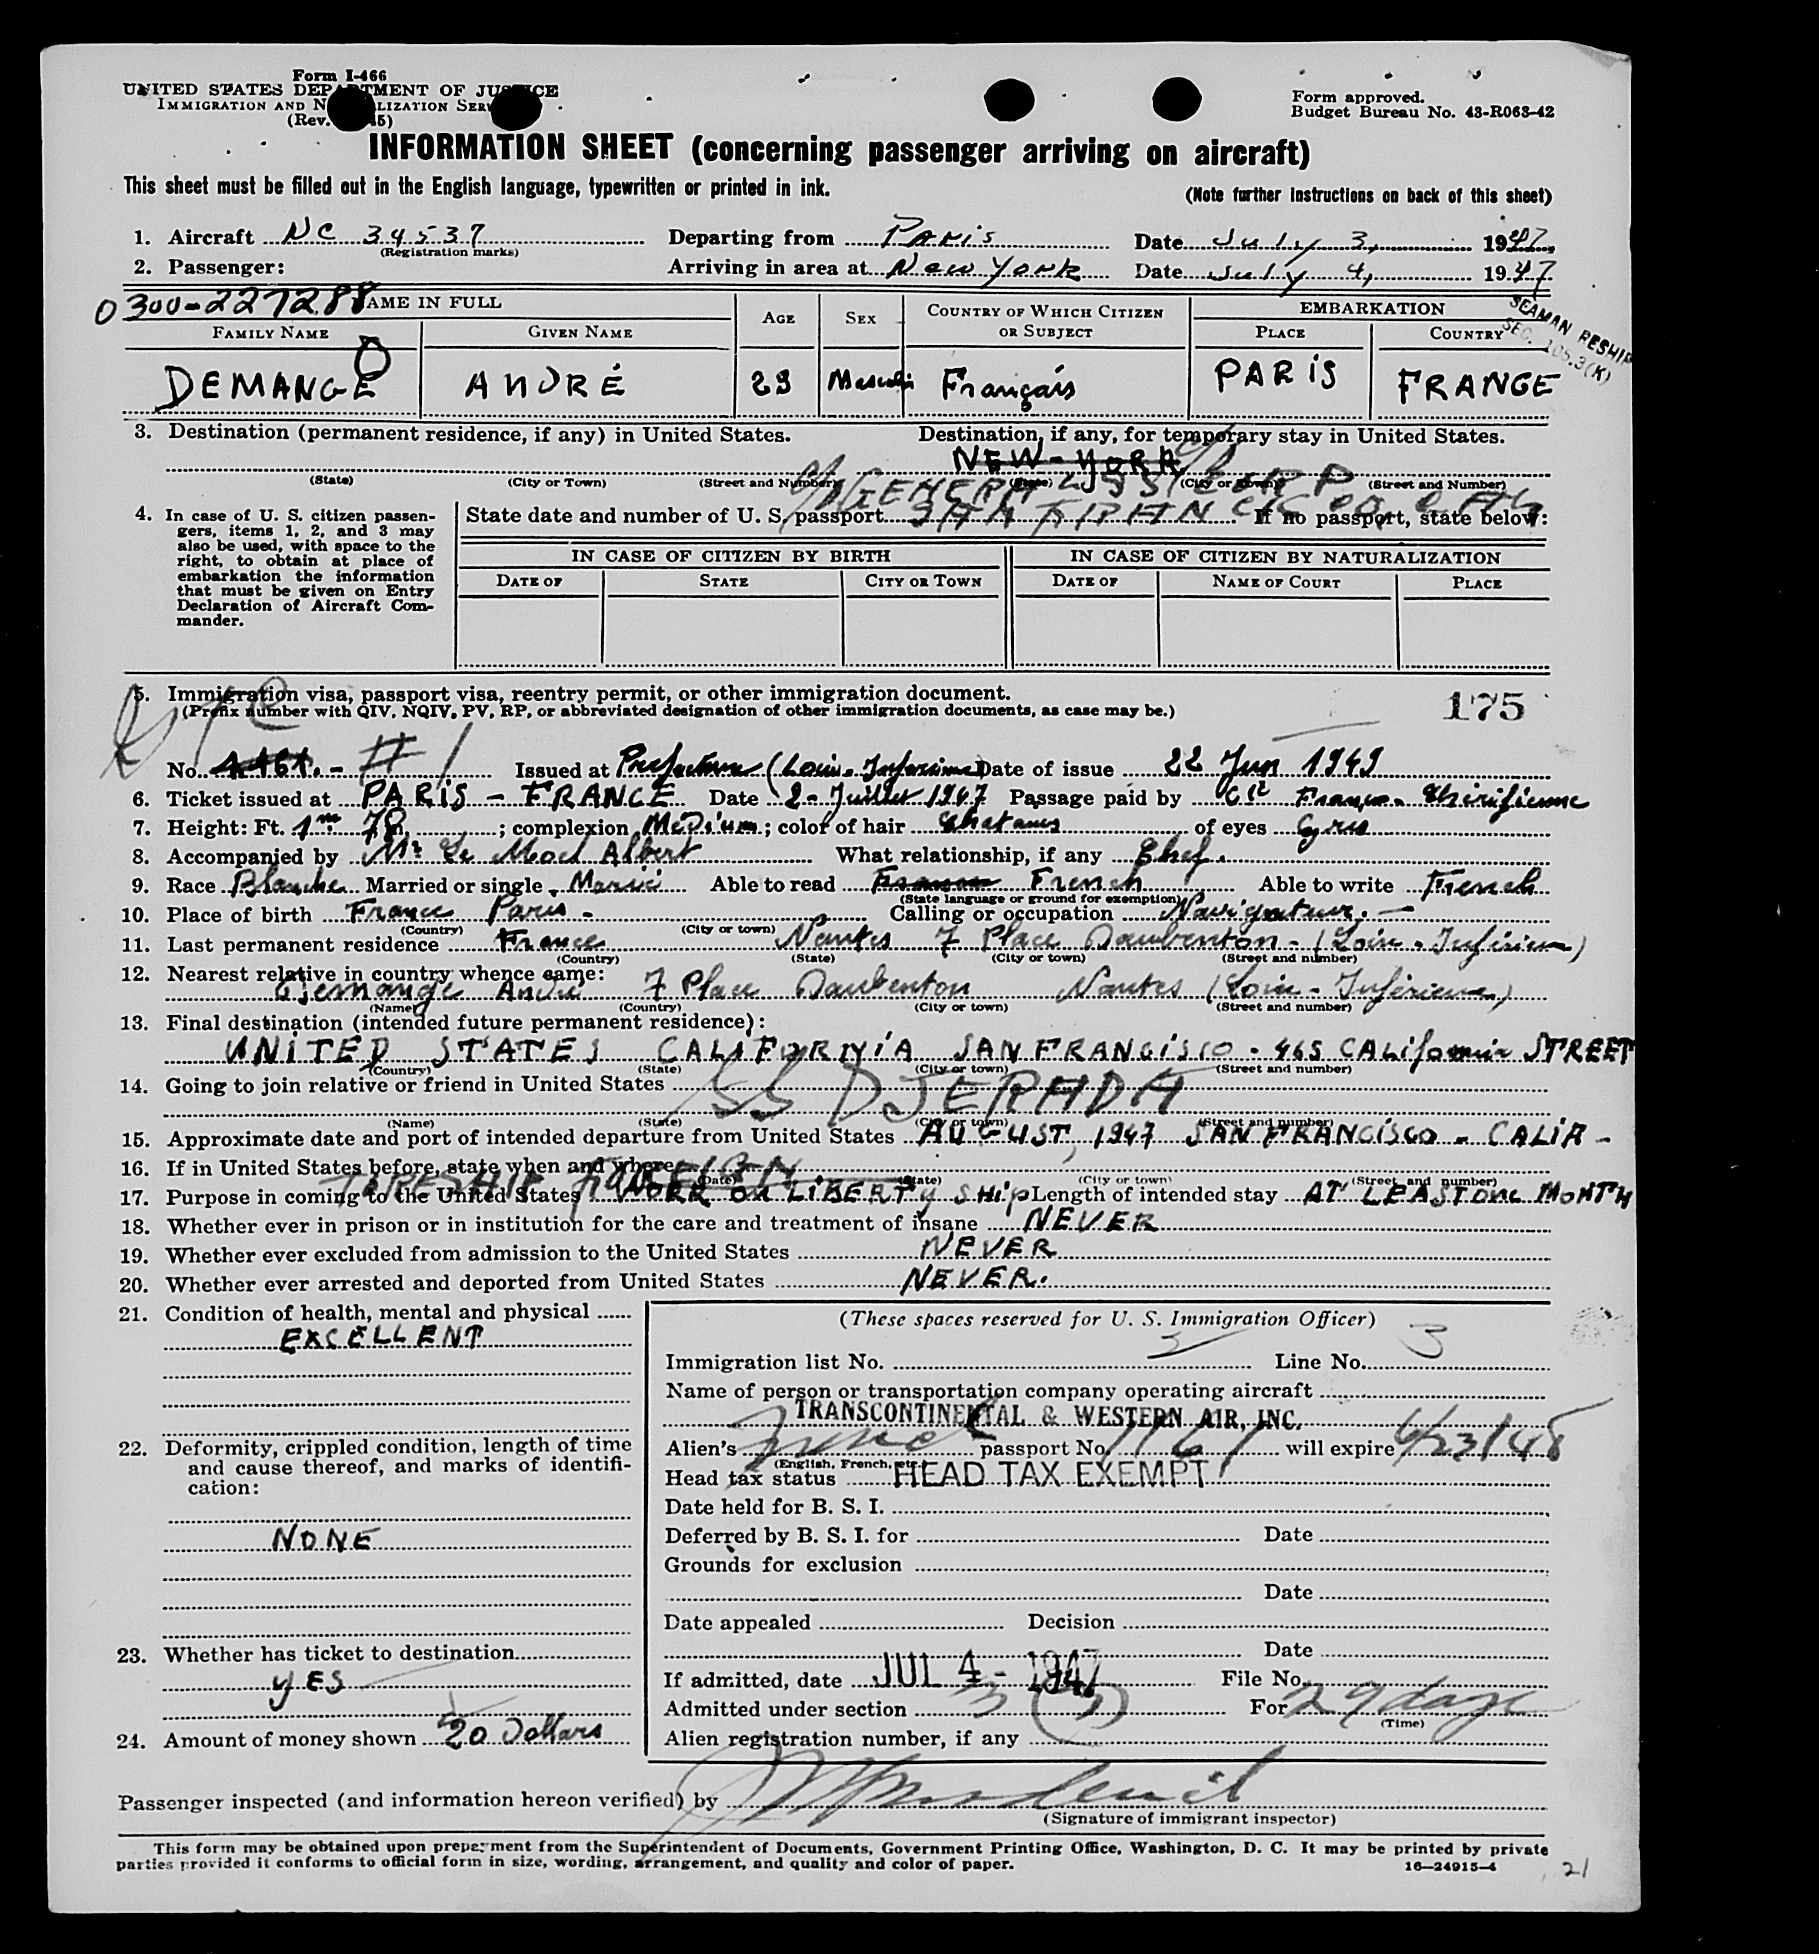 Form I-466
UNITED STATES DEPARTMENT OF JUSTICE
IMMIGRATION AND NATURALIZATION SERVICE
(Rev. 45)
Form approved.
Budget Bureau No. 43-R063-42
INFORMATION SHEET (concerning passenger arriving on aircraft)
This sheet must be filled out in the English language, typewritten or printed in ink.
(Note further instructions on back of this sheet)
1. Aircraft NC 34537 Departing from PARIS Date July 3, 1947
(Registration marks)
2. Passenger: Arriving in area at New York Date July 4, 1947
0300-227288
NAME IN FULL AGE SEX COUNTRY OF WHICH CITIZEN OR SUBJECT EMBARKATION
FAMILY NAME GIVEN NAME PLACE COUNTRY
SEAMAN RESHIP
SEC. 105.3(K)
DEMANGE ANDRÉ 29 Masculin Français PARIS FRANCE
3. Destination (permanent residence, if any) in United States. Destination, if any, for temporary stay in United States.
NEW-YORK
(State) (City or Town) (Street and Number) (State) (City or Town) (Street and Number)
GENERAL SS CORP
4. In case of U. S. citizen passengers, items 1, 2, and 3 may also be used, with space to the right, to obtain at place of embarkation the information that must be given on Entry Declaration of Aircraft Commander.
State date and number of U. S. passport SAN FRANCISCO CAL If no passport, state below:
IN CASE OF CITIZEN BY BIRTH IN CASE OF CITIZEN BY NATURALIZATION
DATE OF STATE CITY OR TOWN DATE OF NAME OF COURT PLACE
5. Immigration visa, passport visa, reentry permit, or other immigration document.
(Prefix number with QIV, NQIV, PV, RP, or abbreviated designation of other immigration documents, as case may be.)
175
No. # 1 Issued at Prefecture (Loire-Inférieure) Date of issue 22 Juin 1949
6. Ticket issued at PARIS - FRANCE Date 2 - Juillet 1947 Passage paid by Cie Franco-Chérifienne
7. Height: Ft. 1m 78 ; complexion Medium ; color of hair Chatains of eyes Gris
8. Accompanied by Mr Le Moel Albert What relationship, if any Chef.
9. Race Blanche Married or single Marié Able to read French Able to write French
(State language or ground for exemption)
10. Place of birth France Paris - Calling or occupation Navigateur. -
(Country) (City or town)
11. Last permanent residence France Nantes 7 Place Daubenton - (Loire-Inférieure)
(Country) (State) (City or town) (Street and number)
12. Nearest relative in country whence came:
Demange André 7 Place Daubenton Nantes (Loire-Inférieure)
(Name) (Country) (City or town) (Street and number)
13. Final destination (intended future permanent residence):
UNITED STATES CALIFORNIA SAN FRANCISCO - 465 CALifornia STREET
(Country) (State) (City or town) (Street and number)
14. Going to join relative or friend in United States
SS DJERADA
(Name) (State) (City or town) (Street and number)
15. Approximate date and port of intended departure from United States AUGUST, 1947 SAN FRANCISCO - CALIA -
16. If in United States before, state when and where
(Date) (State) (City or town) (Street and number)
TO RESHIP FOREIGN
17. Purpose in coming to the United States WORK on LIBERTY SHIP Length of intended stay AT LEAST one MONTH
18. Whether ever in prison or in institution for the care and treatment of insane NEVER
19. Whether ever excluded from admission to the United States NEVER
20. Whether ever arrested and deported from United States NEVER.
21. Condition of health, mental and physical
EXCELLENT
22. Deformity, crippled condition, length of time and cause thereof, and marks of identification:
NONE
23. Whether has ticket to destination
YES
24. Amount of money shown 20 Dollars
(These spaces reserved for U. S. Immigration Officer)
Immigration list No. Line No. 3
Name of person or transportation company operating aircraft
TRANSCONTINENTAL & WESTERN AIR, INC.
Alien's French passport No. 1161 will expire 6/23/48
(English, French, etc.)
Head tax status HEAD TAX EXEMPT
Date held for B. S. I.
Deferred by B. S. I. for Date
Grounds for exclusion
Date
Date appealed Decision
Date
If admitted, date JUL 4 - 1947 File No.
Admitted under section 3 (5) For 29 days
(Time)
Alien registration number, if any
Passenger inspected (and information hereon verified) by
(Signature of immigrant inspector)
This form may be obtained upon prepayment from the Superintendent of Documents, Government Printing Office, Washington, D. C. It may be printed by private
parties provided it conforms to official form in size, wording, arrangement, and quality and color of paper.
16—24915-4
21